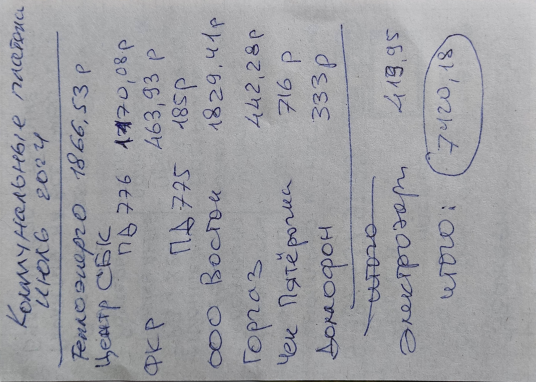 Коммунальные платежи
июль 2024
Теплоэнерго 1866,53р
Центр СБК
ПД 776 1170,08р
ФКР 463,93р
ПД 775 185р
ООО Восток 1829,41р
Горгаз 442,28р
Чек Пятёрочка 716р
Домофон 333р
итого
Электроэнерг 419,95
итого: 7420,18